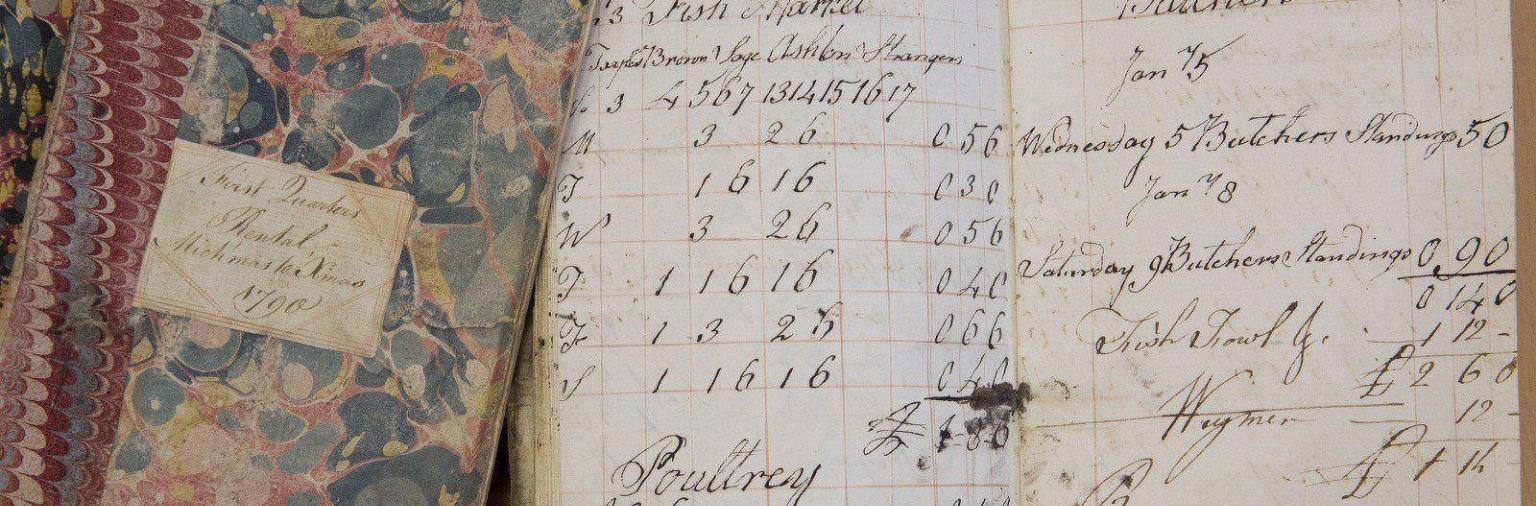 First Quarters
Rental
Michmas to Xmas
1790
3 Fish Market
Brown Sage Ashton Strangers
3 4 5 6 7 13 14 15 16 17
M 3 2 6 0 5 6
T 1 6 1 6 0 3 0
W 3 2 6 0 5 6
T 1 1 6 1 6 0 4 0
F 1 3 2 6 0 6 6
S 1 1 6 1 6 0 4 0
£ 1 8 6
Poultrey
Butchers
Jan 5
Wednesday 5 Butchers Standings 5 0
Jan 8
Saturday 9 Butchers Standings 0 9 0
0 14 0
Fish Fowl &. 1 12 -
£ 2 6 0
Waymen 12 -
£ 1 14